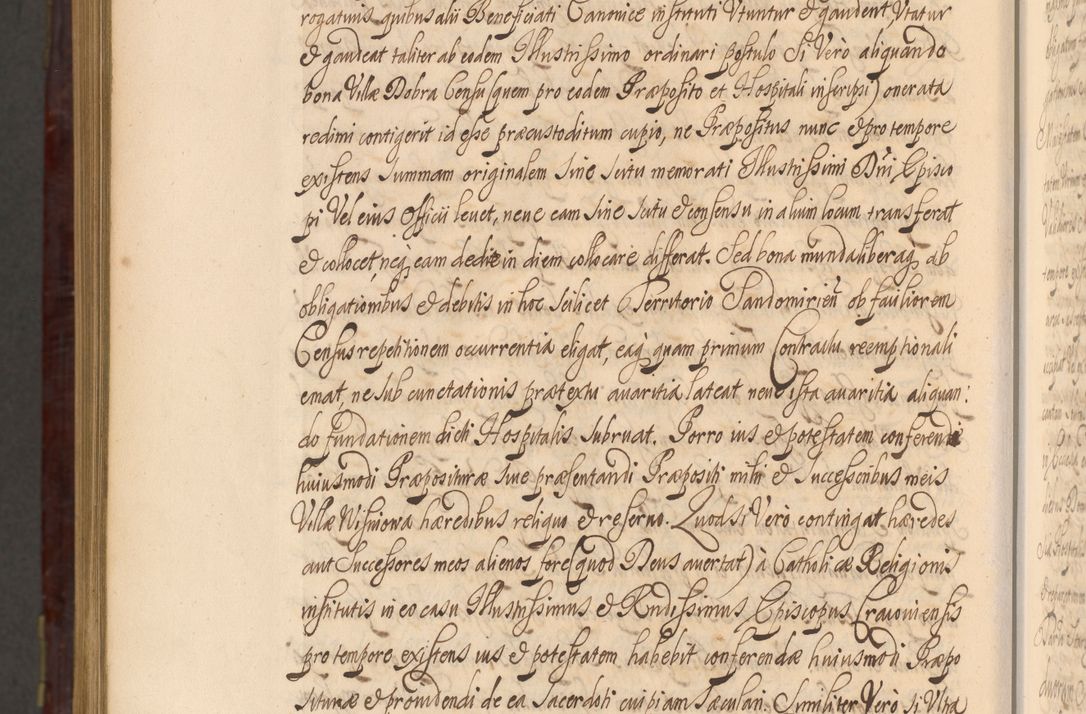 rogativis quibus alii Beneficiati Canonice instituti Vtuntur & gaudent, Vtatur
& gaudeat taliter ab eodem Illustrissimo ordinari postulo Si Verò aliquando
bona Villæ Dobra Censu (quem pro eodem Præposito et Hospitali inscripsi) onerata
redimi contigerit id esse præcustoditum cupio, ne Præpositus nunc & pro tempore
existens Summam originalem Sine Scitu memorati Illustrissimi Dñi Episco
pi Vel eius Officii levet, neve eam Sine Scitu & consensu in alium locum transferat
& collocet, neq eam de die in diem collocare differat. Sed bona munda libera q ab
obligationibus & debitis in hoc Scilicet Territorio Sandomirien̄ ob faciliorem
Census repetitionem occurrentia eligat, eaq quam primum Contractu reemptionali
emat, ne Sub cunctationis prætextu avaritia lateat neve ista avaritia aliquan:
do fundationem dicti Hospitalis Subruat. Porro ius & potestatem conferendi
huiusmodi Præposituræ Sive præsentandi Præpositi mihi & Successoribus meis
Villæ Wisniowa hæredibus reliquo & reservo. Quod si Verò contingat hæredes
aut Successores meos alienos fore (quod Deus avertat) à Catholicæ Religionis
institutis in eo casu Illustrissimus & Rndissimus Episcopus Cracoviensis
pro tempore existens ius & potestatem habebit conferendæ huiusmodi Præpo
Situræ & providendi de ea Sacerdoti cuipiam Sæculari. Similiter Verò Si Vltra